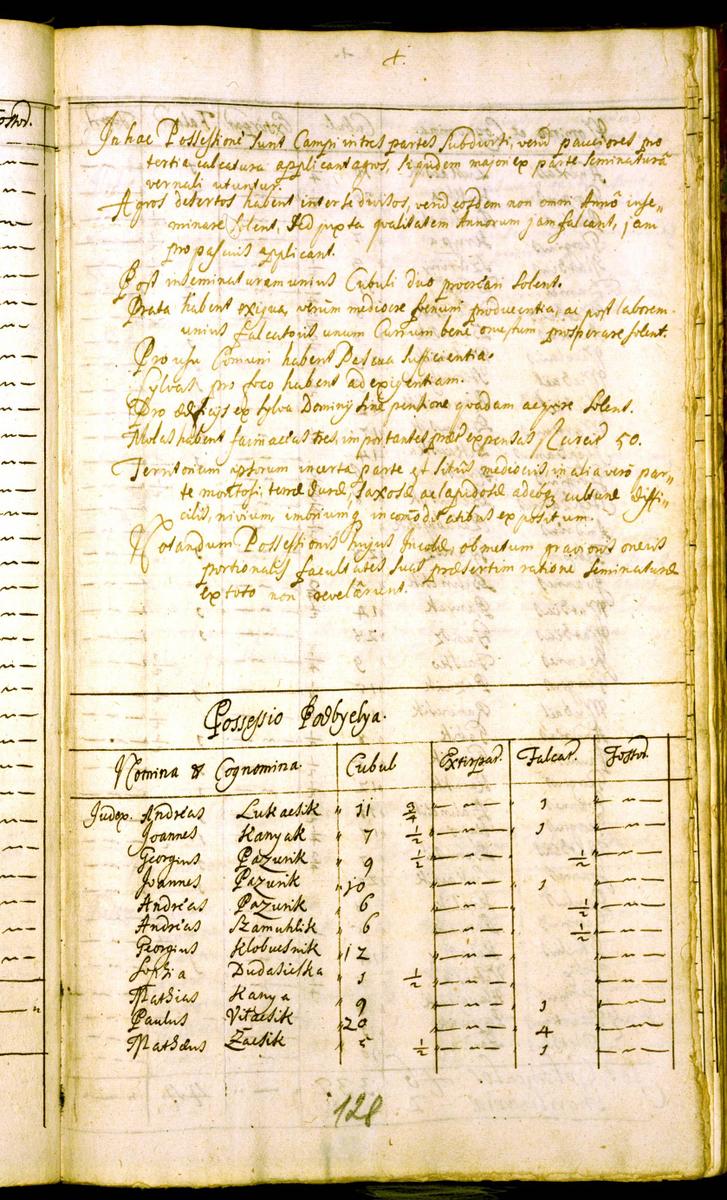 4.
In hac Possessione sunt Campi in tres partes subdivisi, verum pauciores pro
tertia calcatura applicant agros, siquidem majori ex parte seminatura
vernali utuntur.
Agros desertos habent inter se divisos, verum eosdem non omni Anno inse„
minare solent, sed juxta qualitatem Annorum jam falcant, jam
pro pascuis applicant.
Post inseminaturam unius Cubuli duo procreari solent.
Prata habent exigua, verum mediocre foenum producentia, ac post laborem
unius falcatoris unum Currum bene onustum prosperare solent.
Pro usu Comuni habent Pascua sufficientia.
Sylvas pro foco habent ad exigentiam.
Pro ædificijs ex sylva Dominij sine pensione quadam acqrere solent.
Molas habent farinaceas tres, importantes præter expensas 50.
Territorium agrorum in certa parte est situs mediocris, in alia vero par„
te montosi, terræ duræ, saxosæ, ac lapidosæ adeoq culturæ diffi„
cilis, nivium, imbriumq incomoditatibus expositum.
Notandum Possessionis hujus Incolæ, ob metum gravioris oneris
portionales facultates suas præsertim ratione seminaturæ
ex toto non revelarent.
Possessio Podbyelya.
Nomina & Cognomina Cubul Extirpat. Falcat. Fossor.
Judex. Andreas Lukacsik „ 11 3/4 „ — „ — „ 1 „ — „ —
Joannes Kanyak „ 7 1/2 „ — „ — „ 1 „ — „ —
Georgius Pazurik „ 9 1/2 „ — „ — 1/2 „ — „ —
Joannes Pazurik „ 10 „ — „ — „ 1 „ — „ —
Andreas Pazurik „ 6 „ — „ — 1/2 „ — „ —
Andreas Szamuhlik „ 6 „ — „ — 1/2 „ — „ —
Georgius Klobucsnik „ 12 „ — „ — „ — „ — „ — „ —
Sophia Dudasicska „ 1 1/2 „ — „ — „ — „ — „ — „ —
Mathias Kanya „ 9 „ — „ — „ 1 „ — „ —
Paulus Vitacsik „ 20 „ — „ — „ 4 „ — „ —
Mathæus Zacsik „ 5 1/2 „ — „ — „ 1 „ — „ —
128